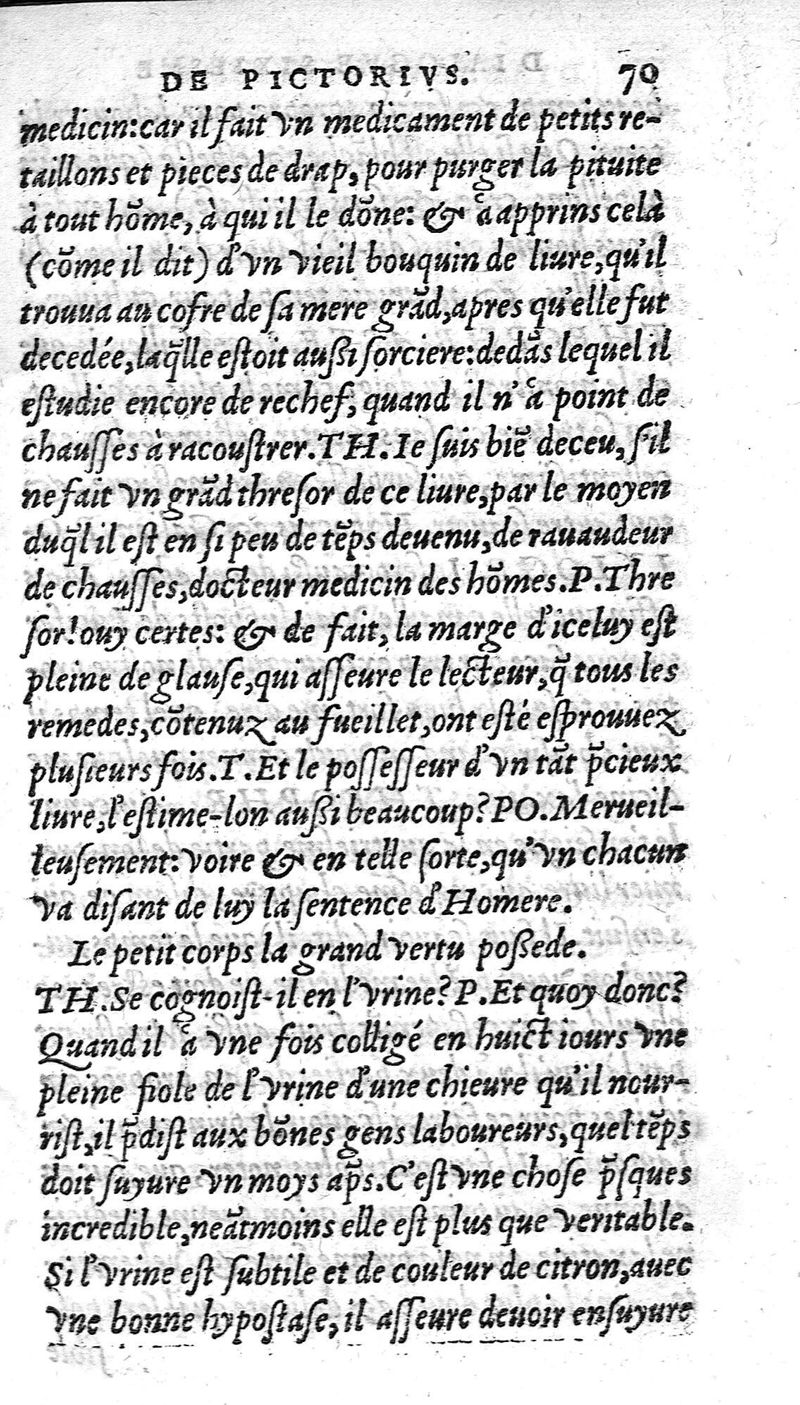 DE PICTORIVS. 70
medicin:car il fait vn medicament de petits re-
taillons et pieces de drap, pour purger la pituite
à tout hõme, à qui il le dõne: & à apprins celà
(cõme il dit) d'vn vieil bouquin de liure,qu'il
trouua au cofre de sa mere grãd,apres qu'elle fut
decedée,laq̃lle estoit außi sorciere:dedãs lequel il
estudie encore de rechef, quand il n'à point de
chausses à racoustrer.TH.Ie suis biẽ deceu, s'il
ne fait vn grãd thresor de ce liure,par le moyen
duq̃l il est en si peu de tẽps deuenu,de rauaudeur
de chausses,docteur medicin des hõmes.P.Thre
sor!ouy certes: & de fait, la marge d'iceluy est
pleine de glause,qui asseure le lecteur,q̃ tous les
remedes,cõtenuz au fueillet,ont esté esprouuez
plusieurs fois.T.Et le possesseur d'vn tãt p̃cieux
liure,l'estime-lon außi beaucoup?PO.Merueil-
leusement:voire & en telle sorte,qu'vn chacun
va disant de luy la sentence d'Homere.
Le petit corps la grand vertu poßede.
TH.Se cognoist-il en l'vrine?P.Et quoy donc?
Quand il à vne fois colligé en huict iours vne
pleine fiole de l'vrine d'une chieure qu'il nour-
rist,il p̃dist aux bõnes gens laboureurs,quel tẽps
doit suyure vn moys ap̃s.C'est vne chose p̃sques
incredible,neãtmoins elle est plus que veritable.
Si l'vrine est subtile et de couleur de citron,auec
vne bonne hypostase, il asseure deuoir ensuyure